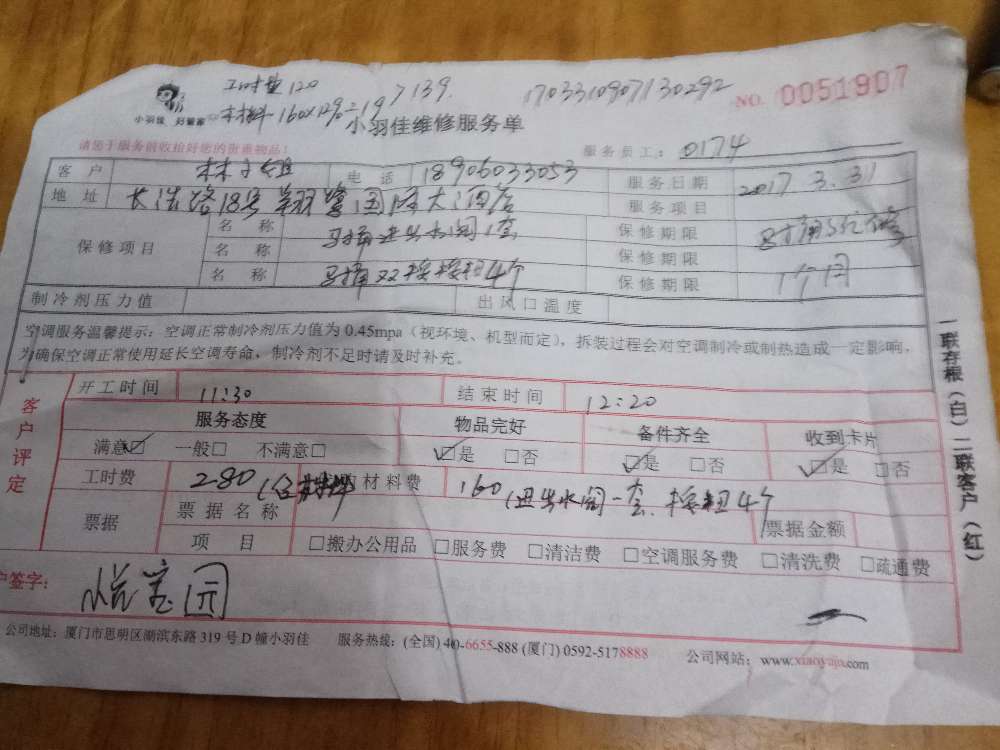 工时费120 >139. 1703310907130292 NO. 0051907
小羽佳 好管家 材料160×12%=19
小羽佳维修服务单
请您于服务前收拾好您的贵重物品! 服务员工: 0174
客户 林小姐 电话 18906033053 服务日期 2017.3.31
地址 长浩路18号翔鹭国际大酒店 服务项目 马桶
保修项目 名称 马桶进出水阀1套 保修期限
名称 保修期限
名称 马桶双按按钮4个 保修期限 1个月
制冷剂压力值 出风口温度
空调服务温馨提示:空调正常制冷剂压力值为0.45mpa(视环境、机型而定),拆装过程会对空调制冷或制热造成一定影响,
为确保空调正常使用延长空调寿命,制冷剂不足时请及时补充。
客户评定 开工时间 11:30 结束时间 12:20
服务态度 物品完好 备件齐全 收到卡片
满意☑ 一般□ 不满意□ ☑是 □否 ☑是 □否 ☑是 □否
工时费 280(含材料 材料费 160(进出水阀一套、按钮4个
票据 票据名称 票据金额
项目 □搬办公用品 □服务费 □清洁费 □空调服务费 □清洗费 □疏通费
户签字: 悦宝园
公司地址:厦门市思明区湖滨东路319号D幢小羽佳 服务热线:(全国)40-6655-888 (厦门)0592-5178888 公司网站:www.xiaoyujia.com
一联存根(白)二联客户(红)